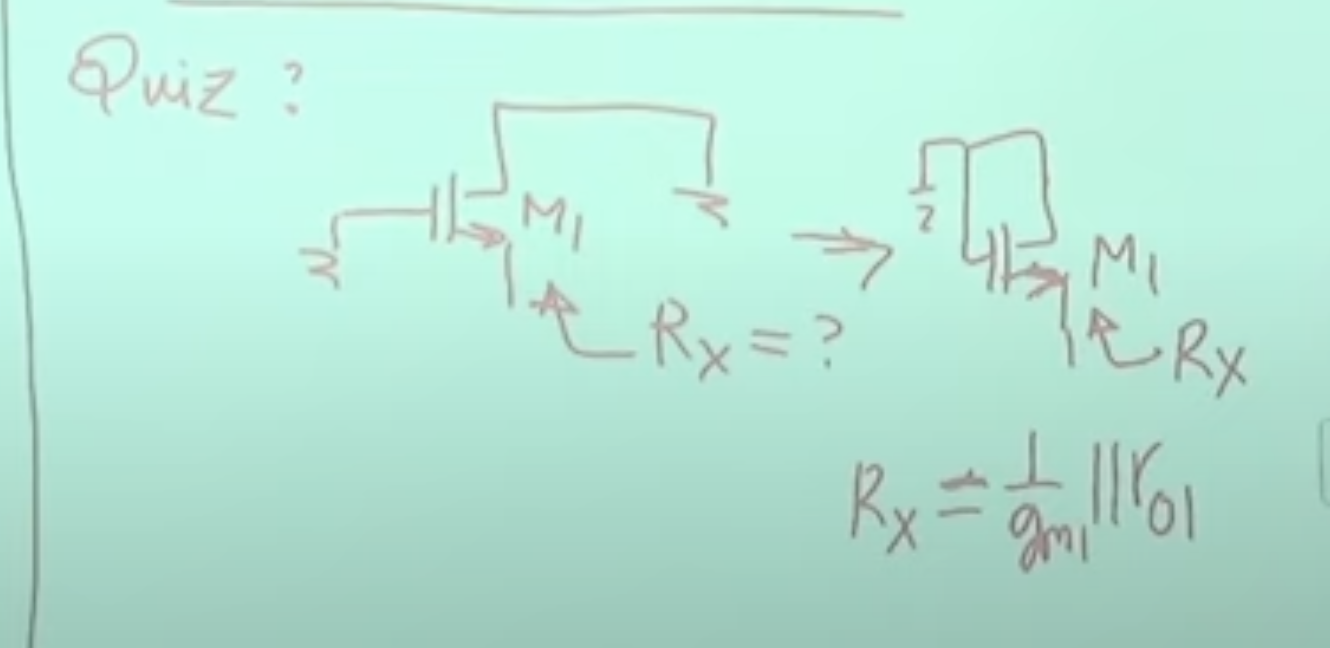 Quiz ?
M1
Rx = ?
M1
Rx
Rx = 1/gm1 || ro1